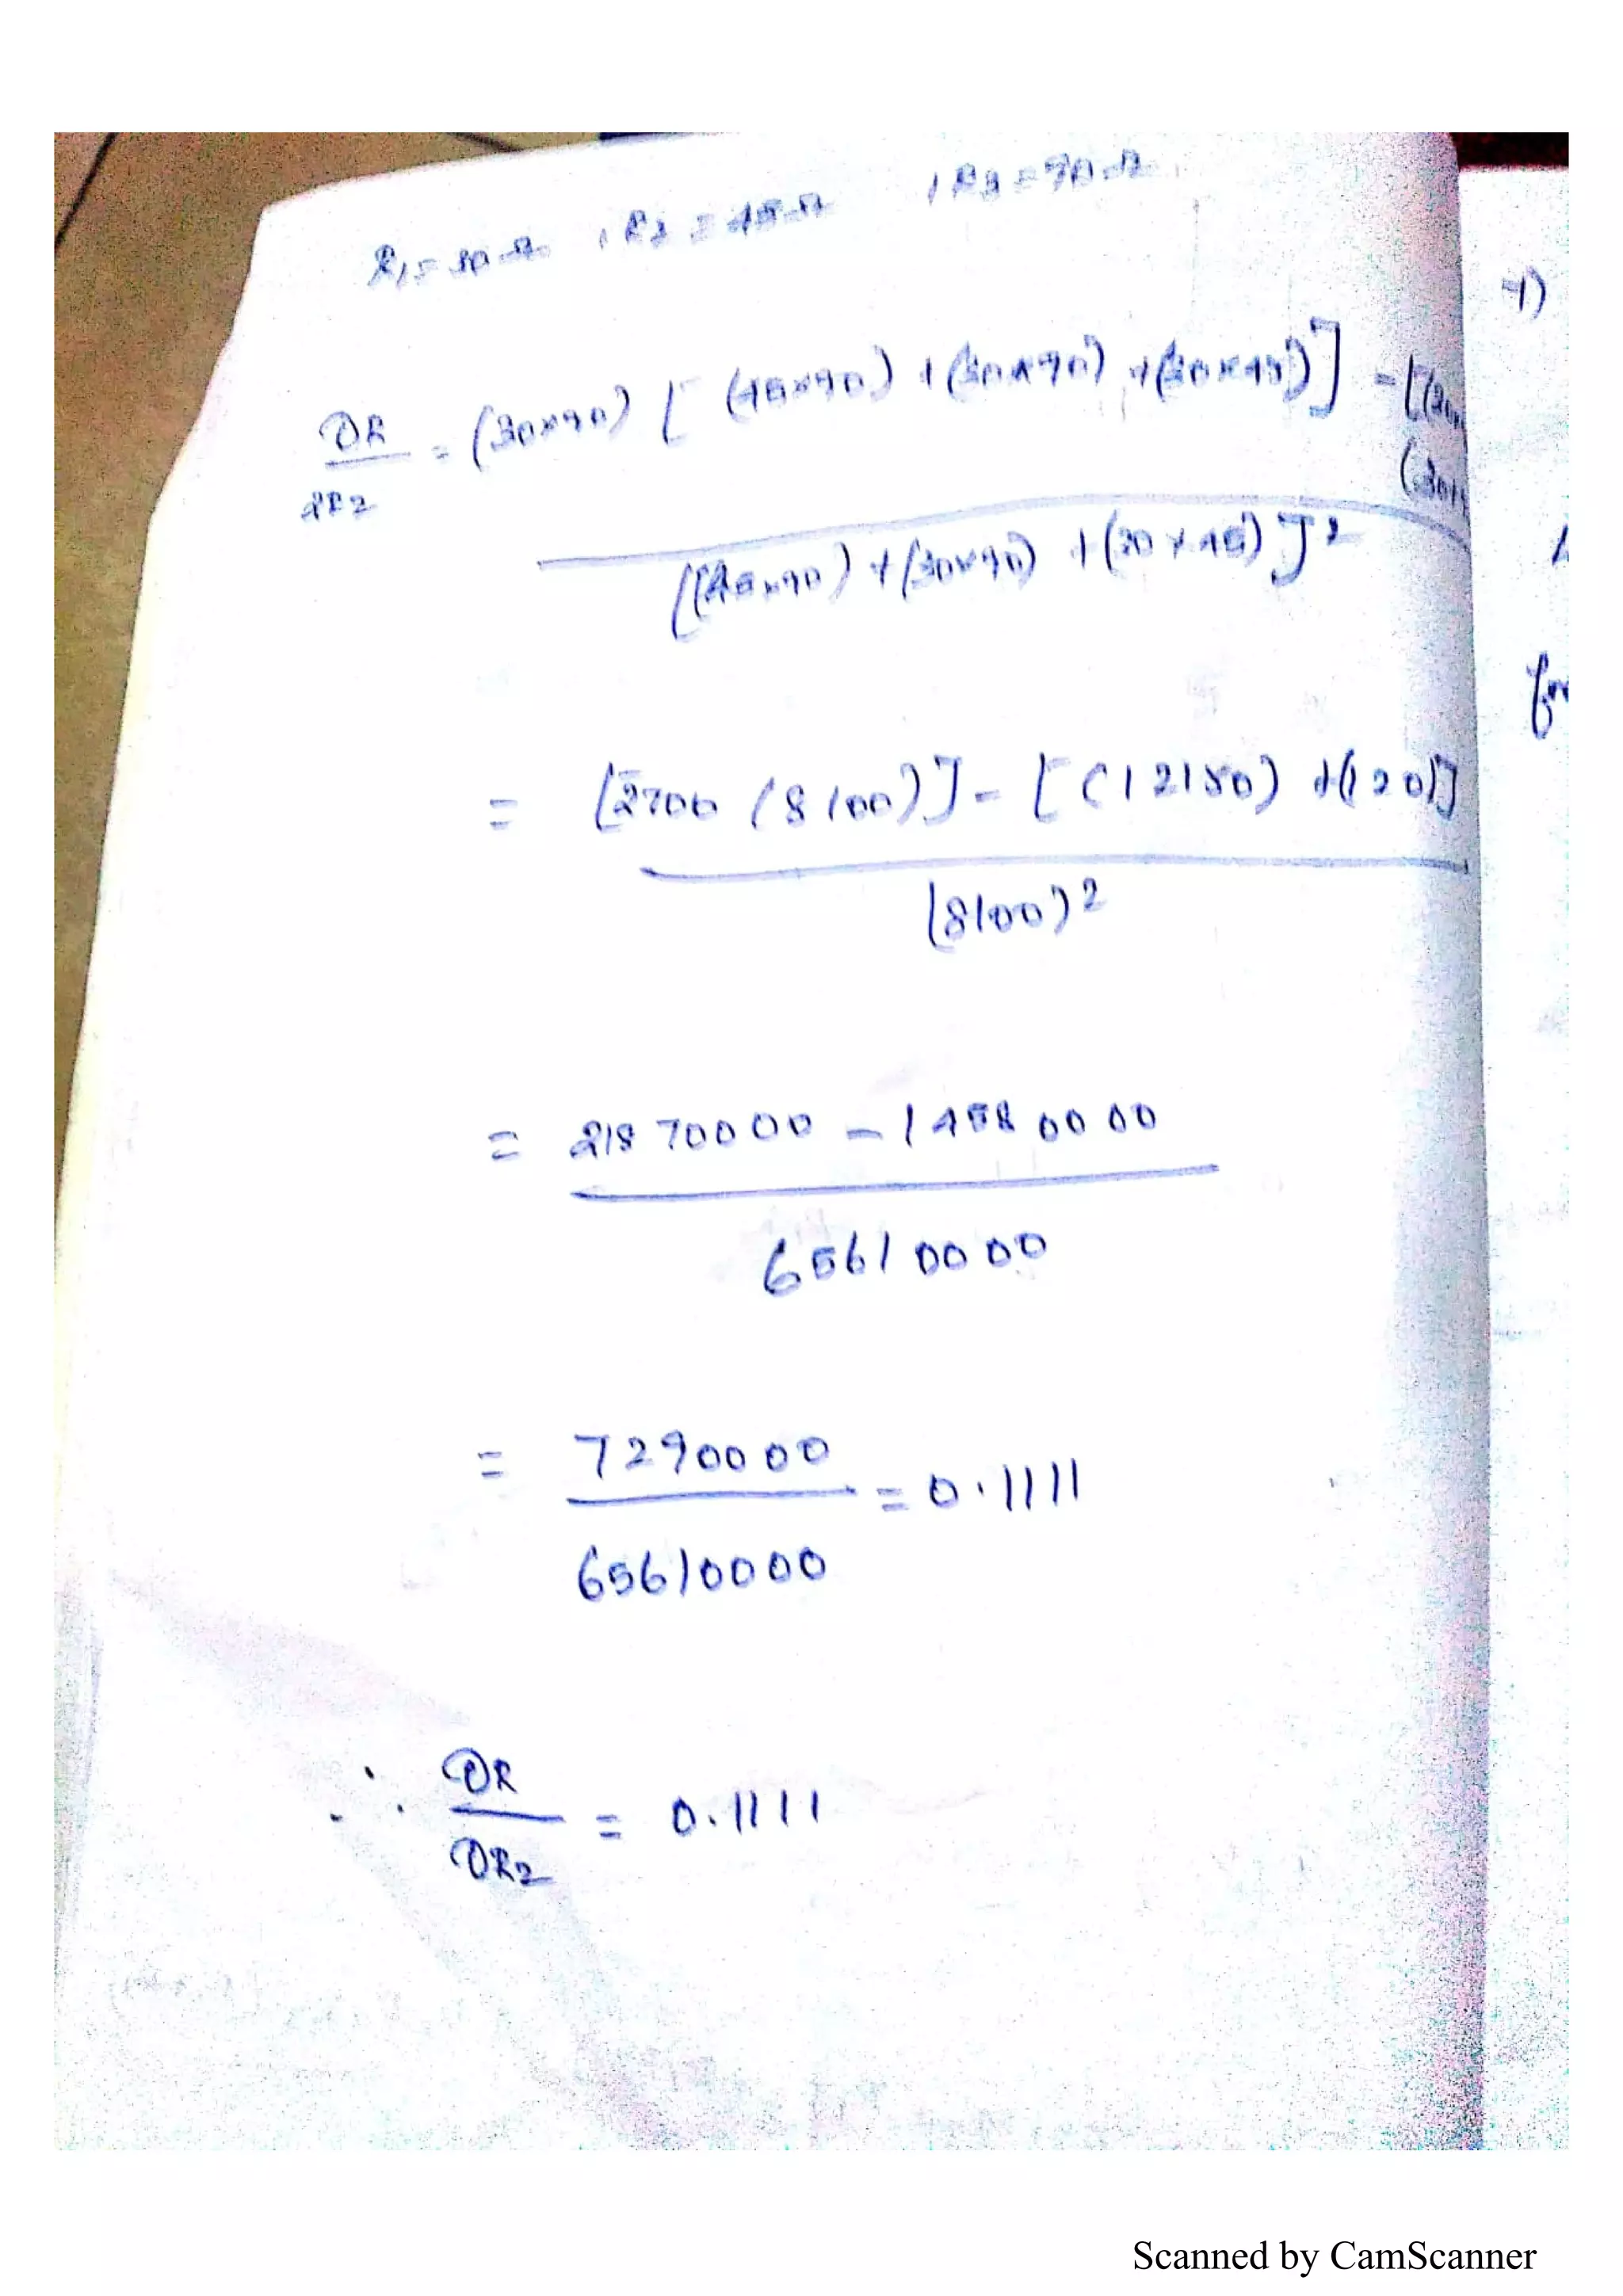 R1 = 30 Ω , R2 = 45 Ω , R3 = 90 Ω
∂R = (30×90) [ (45×90) + (30×90) + (30×45) ] - [(30×
∂R2
(30×
[(45×90) + (30×90) + (30×45) ]²
= [2700 (8100)] - [ (12150) + (120)]
(8100)²
= 21870000 - 14580000
65610000
= 7290000 = 0.1111
65610000
∴ ∂R = 0.1111
∂R2
4)
Scanned by CamScanner